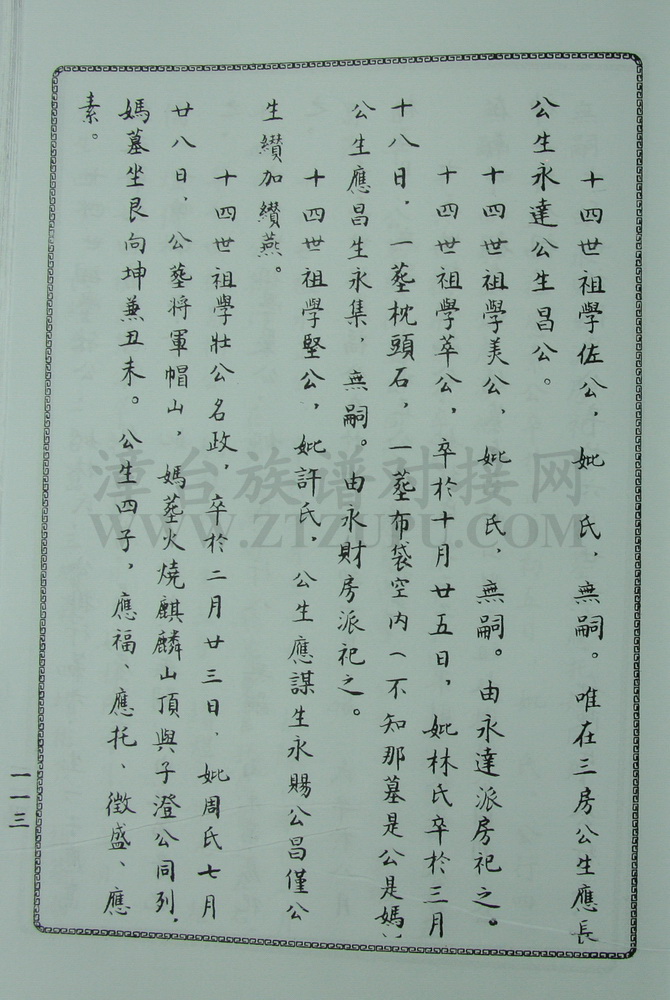 十四世祖學佐公，妣　氏，無嗣。唯在三房公生應長
公生永達公生昌公。
十四世祖學美公，妣　氏，無嗣。由永達派房祀之。
十四世祖學萃公，卒於十月廿五日，妣林氏卒於三月
十八日，一塟枕頭石，一塟布袋空內（不知那墓是公是媽）
公生應昌生永集，無嗣。由永財房派祀之。
十四世祖學堅公，妣許氏，公生應謀生永賜公昌僅公
生纘加纘燕。
十四世祖學壯公名政，卒於二月廿三日，妣周氏七月
廿八日，公塟將軍帽山，媽塟火燒麒麟山頂與子澄公同列，
媽墓坐艮向坤兼丑未。公生四子，應福、應托、徵盛、應
素。
一一三
漳台族谱对接网
WWW.ZTZUPU.COM